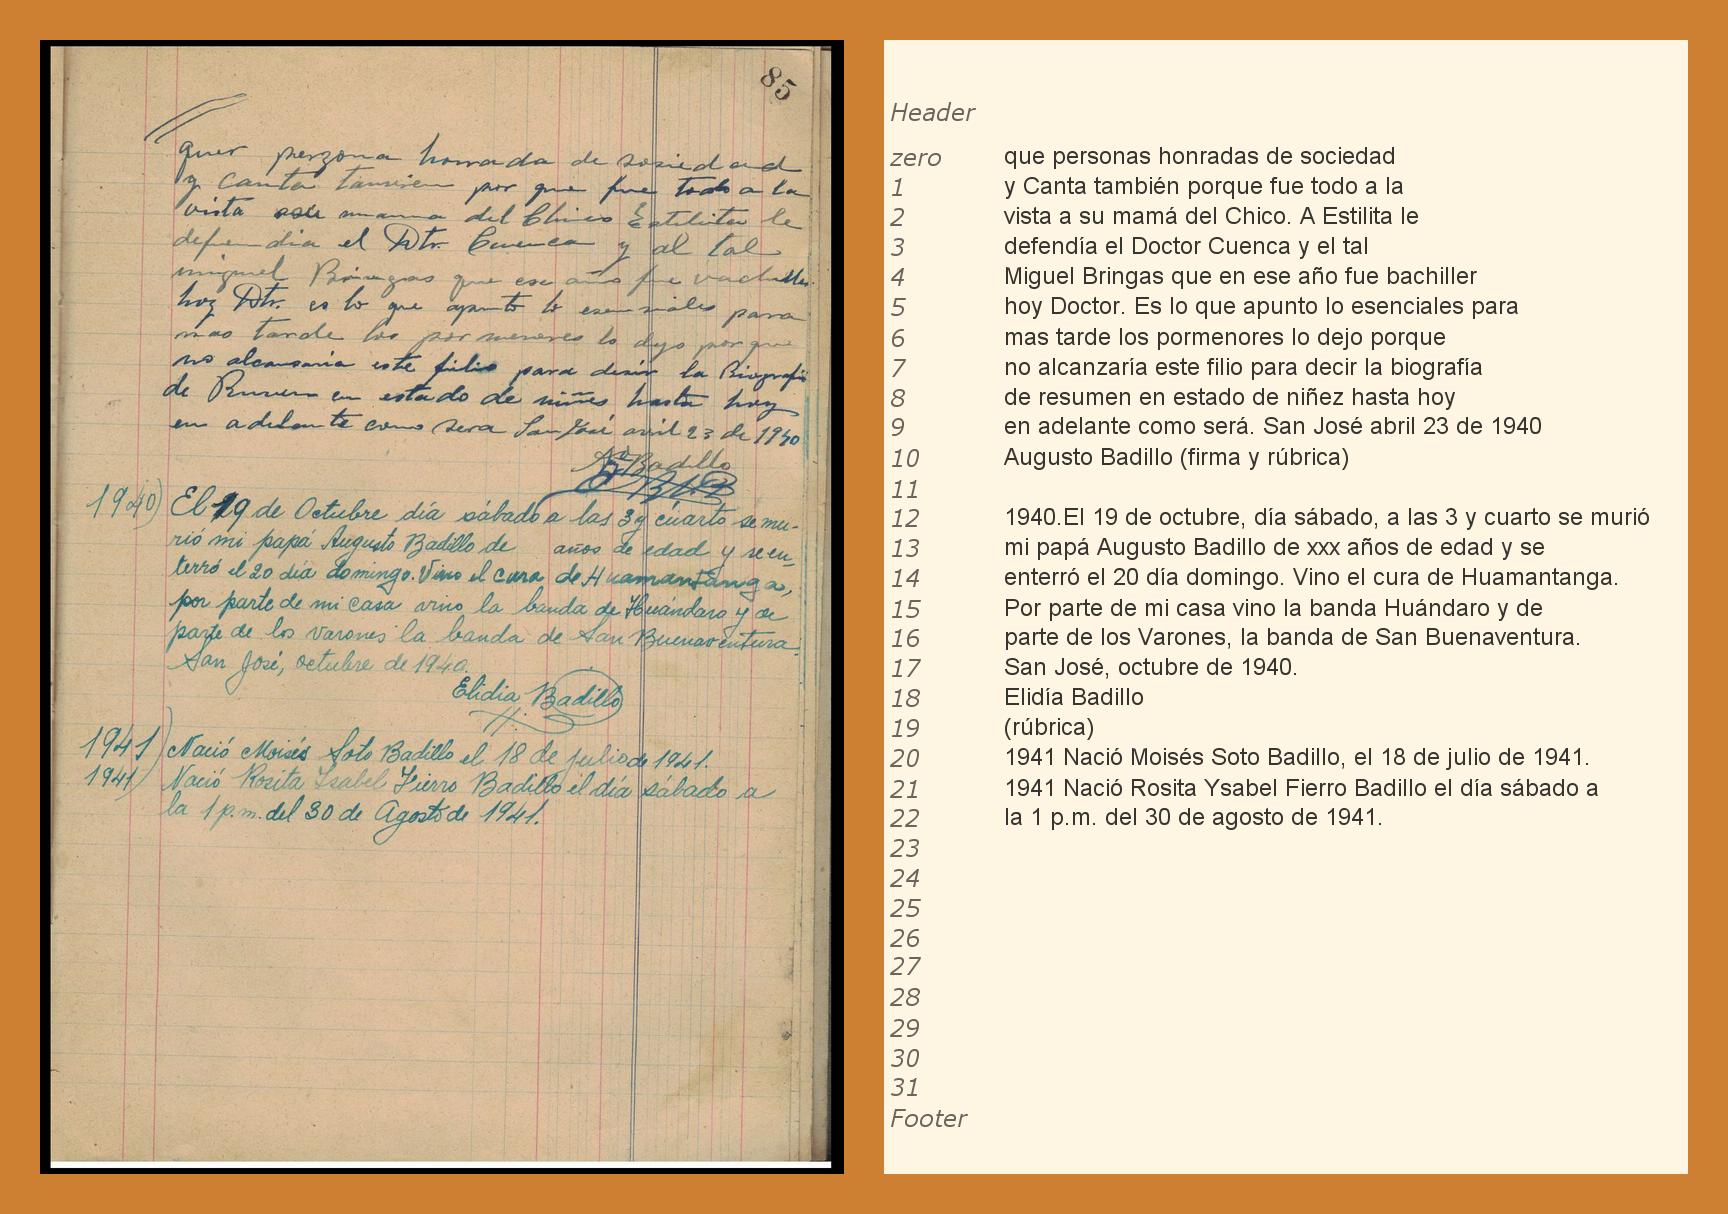 85
quer perzona honrada de sosiedad
y canta tanvien por que fue todo a la
vista mama del Chico Estilita le
defendia el Dtr. Cuenca y al tal
miguel Bringas que ese año fue vachiller
hoy Dtr. es lo que apunto lo esensiales para
mas tarde los pormenores lo dejo porque
no alcansaria este filio para desir la Biografia
de en estado de niñes hasta hoy
en adelante como sera San José avril 23 de 1940
Ato Badillo
1940) El 19 de Octubre día sábado a las 3 y cuarto se mu-
rió mi papá Augusto Badillo de años de edad y se en-
terró el 20 día domingo. Vino el cura de Huamantanga,
por parte de mi casa vino la banda de Huándaro y de
parte de los varones la banda de San Buenaventura.
San José, octubre de 1940.
Elidia Badillo
1941) Nació Moisés Soto Badillo el 18 de julio de 1941.
1941) Nació Rosita Isabel Fierro Badillo el día sábado a
la 1 p.m. del 30 de Agosto de 1941.
Header
zero que personas honradas de sociedad
1 y Canta también porque fue todo a la
2 vista a su mamá del Chico. A Estilita le
3 defendía el Doctor Cuenca y el tal
4 Miguel Bringas que en ese año fue bachiller
5 hoy Doctor. Es lo que apunto lo esenciales para
6 mas tarde los pormenores lo dejo porque
7 no alcanzaría este filio para decir la biografía
8 de resumen en estado de niñez hasta hoy
9 en adelante como será. San José abril 23 de 1940
10 Augusto Badillo (firma y rúbrica)
11
12 1940.El 19 de octubre, día sábado, a las 3 y cuarto se murió
13 mi papá Augusto Badillo de xxx años de edad y se
14 enterró el 20 día domingo. Vino el cura de Huamantanga.
15 Por parte de mi casa vino la banda Huándaro y de
16 parte de los Varones, la banda de San Buenaventura.
17 San José, octubre de 1940.
18 Elidía Badillo
19 (rúbrica)
20 1941 Nació Moisés Soto Badillo, el 18 de julio de 1941.
21 1941 Nació Rosita Ysabel Fierro Badillo el día sábado a
22 la 1 p.m. del 30 de agosto de 1941.
23
24
25
26
27
28
29
30
31
Footer